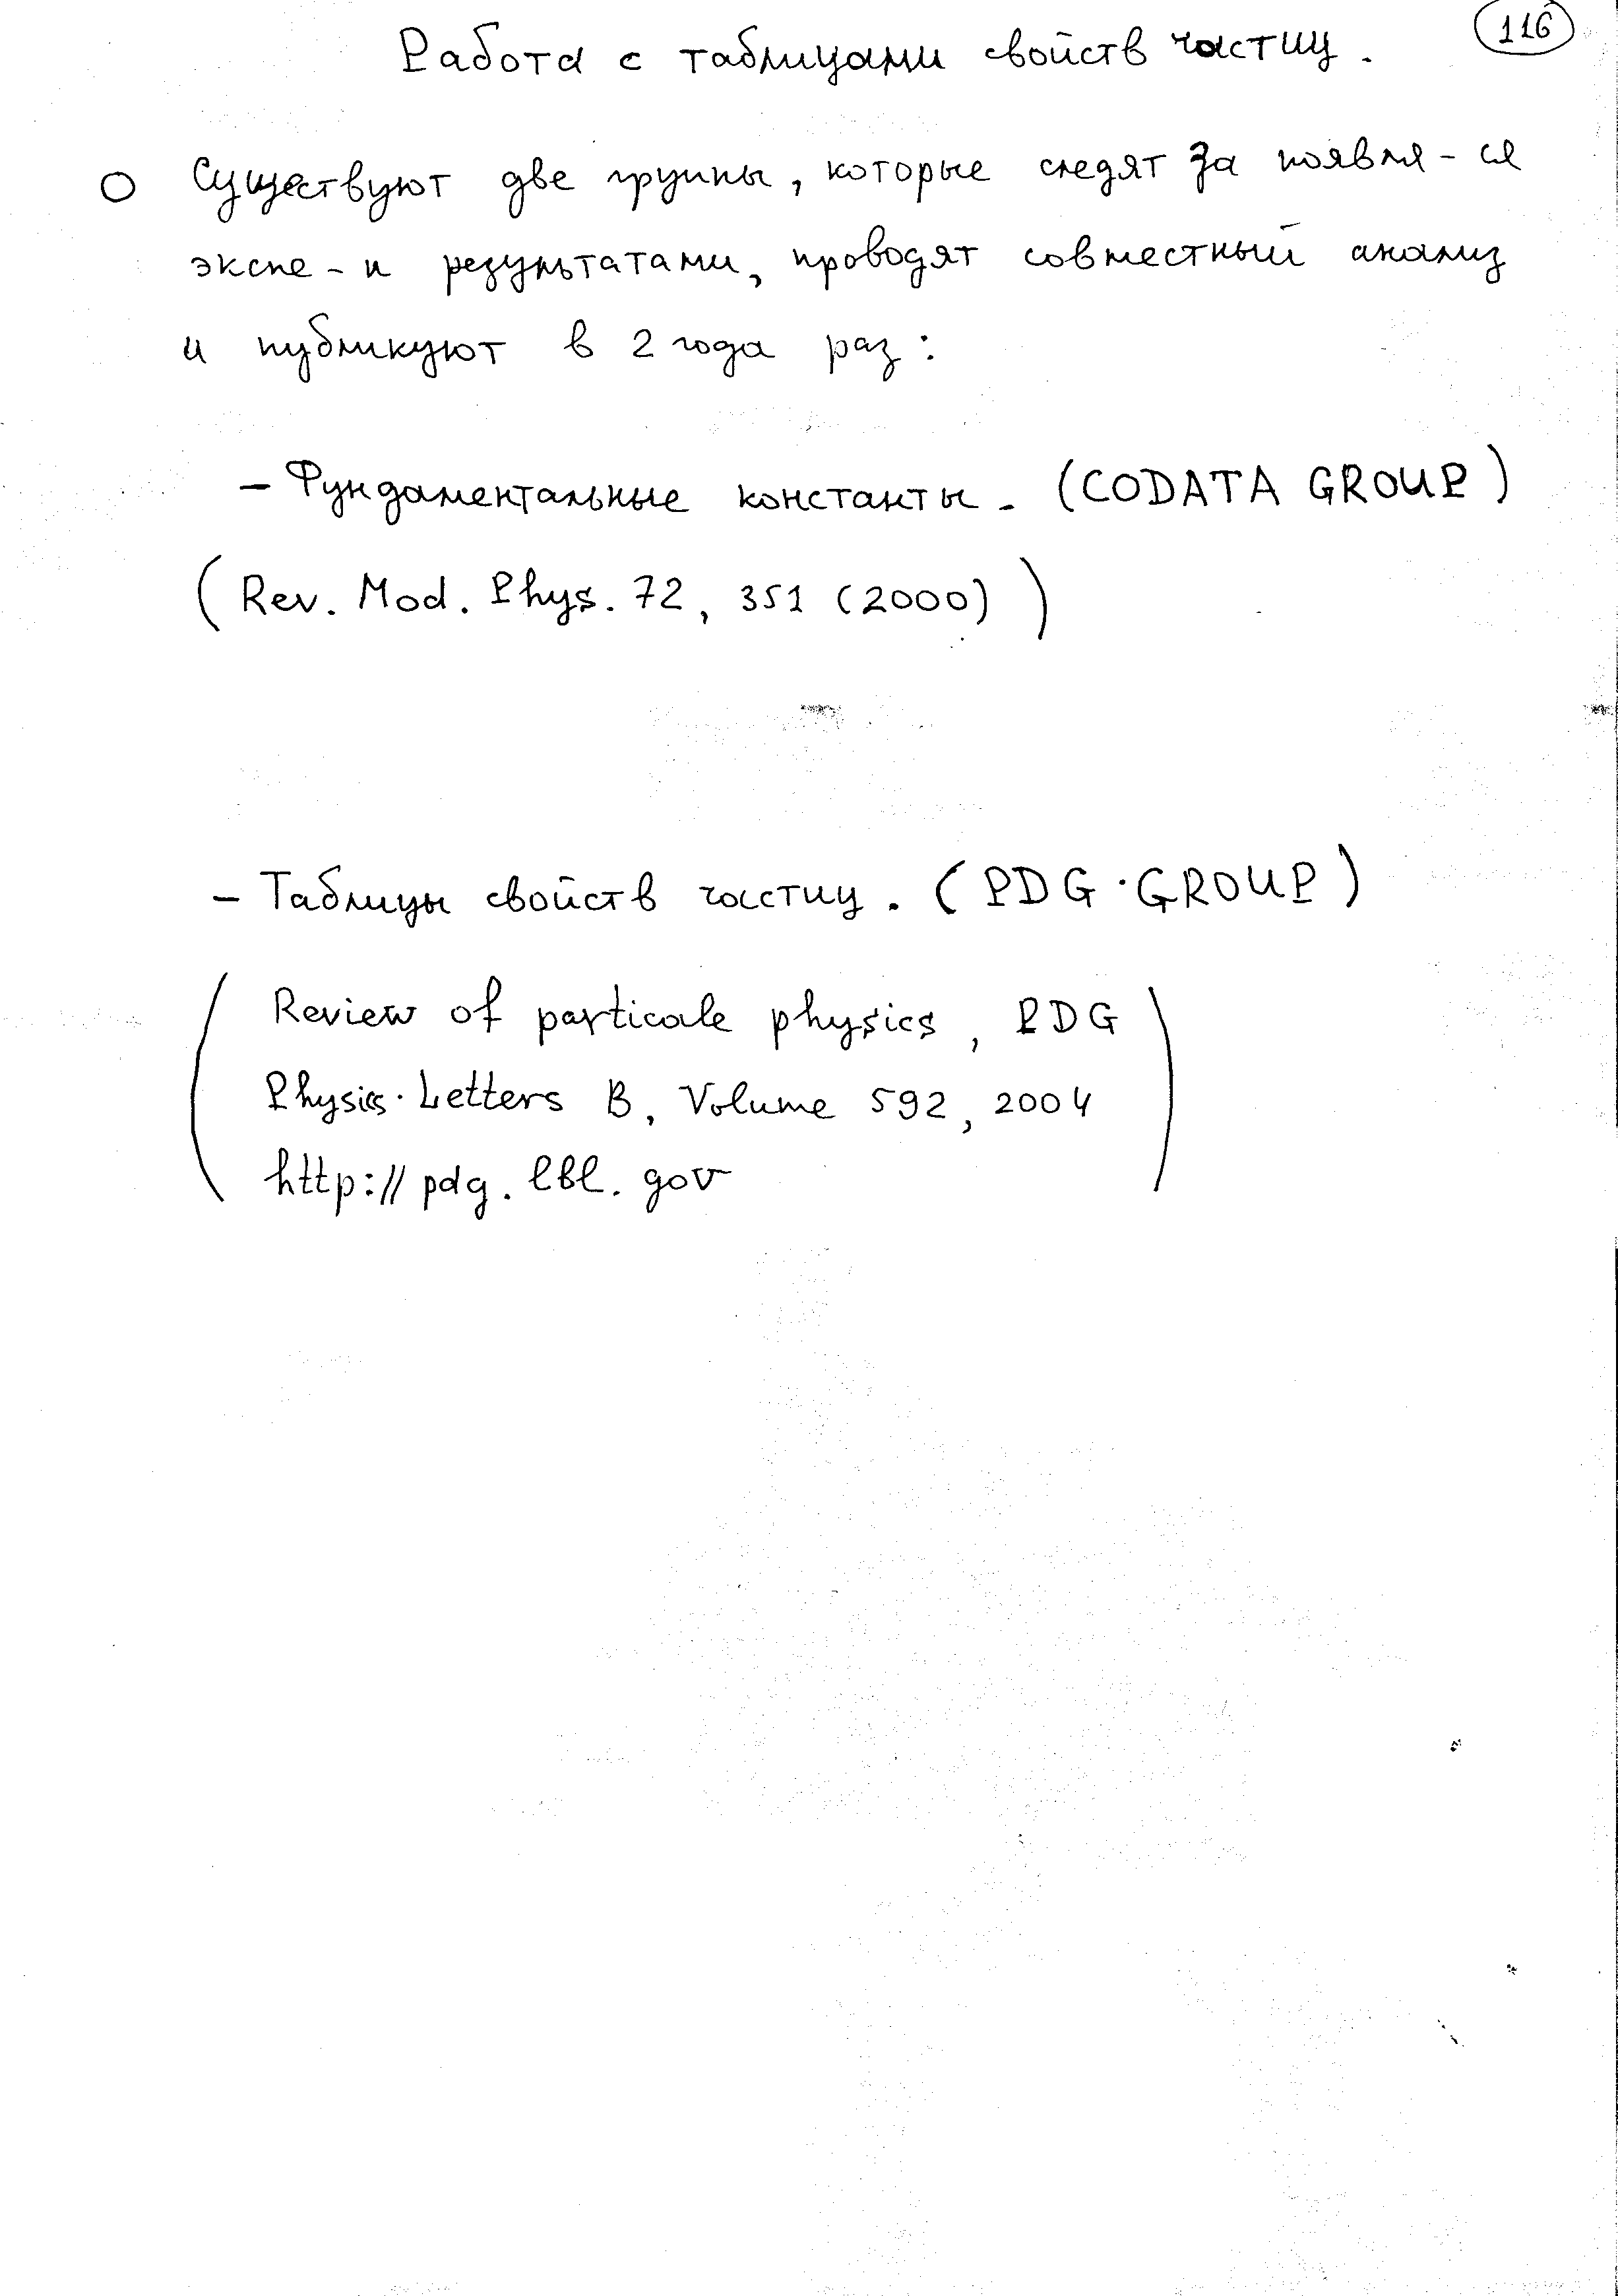 116
Работа с таблицами свойств частиц.
Существуют две группы, которые следят за появля-ся
экспе-и результатами, проводят совместный анализ
и публикуют в 2 года раз:
- Фундаментальные константы. (CODATA GROUP)
(Rev. Mod. Phys. 72, 351 (2000))
- Таблицы свойств частиц. (PDG·GROUP)
Review of particale physics, PDG
Physics·Letters B, Volume 592, 2004
http://pdg.lbl.gov